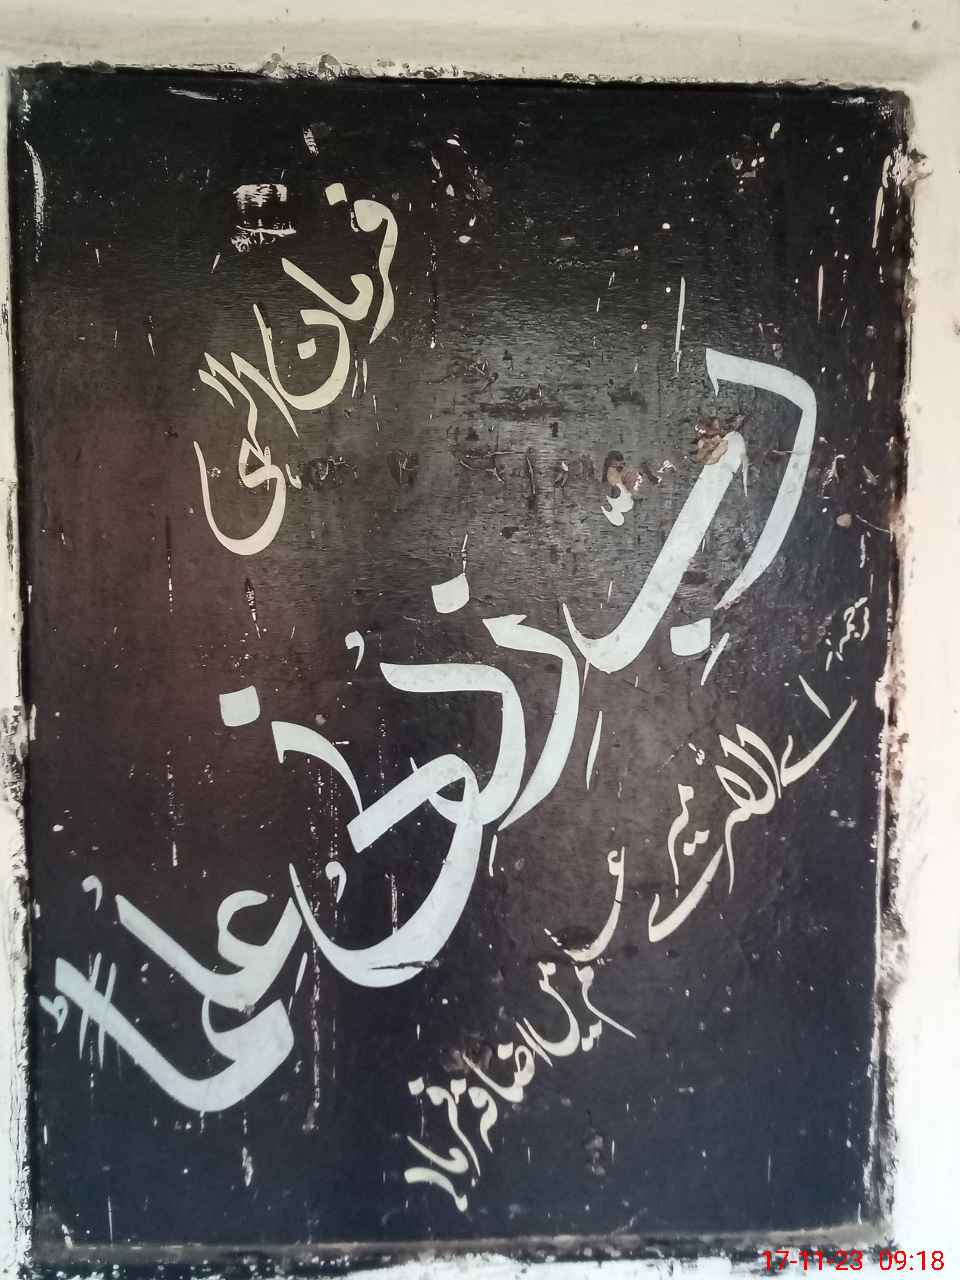 فرمان الٰہی
رَبِّ زِدْنِیْ عِلْمًا
ترجمہ:
اے اللہ میرے
علم میں اضافہ فرما
17-11-23 09:18